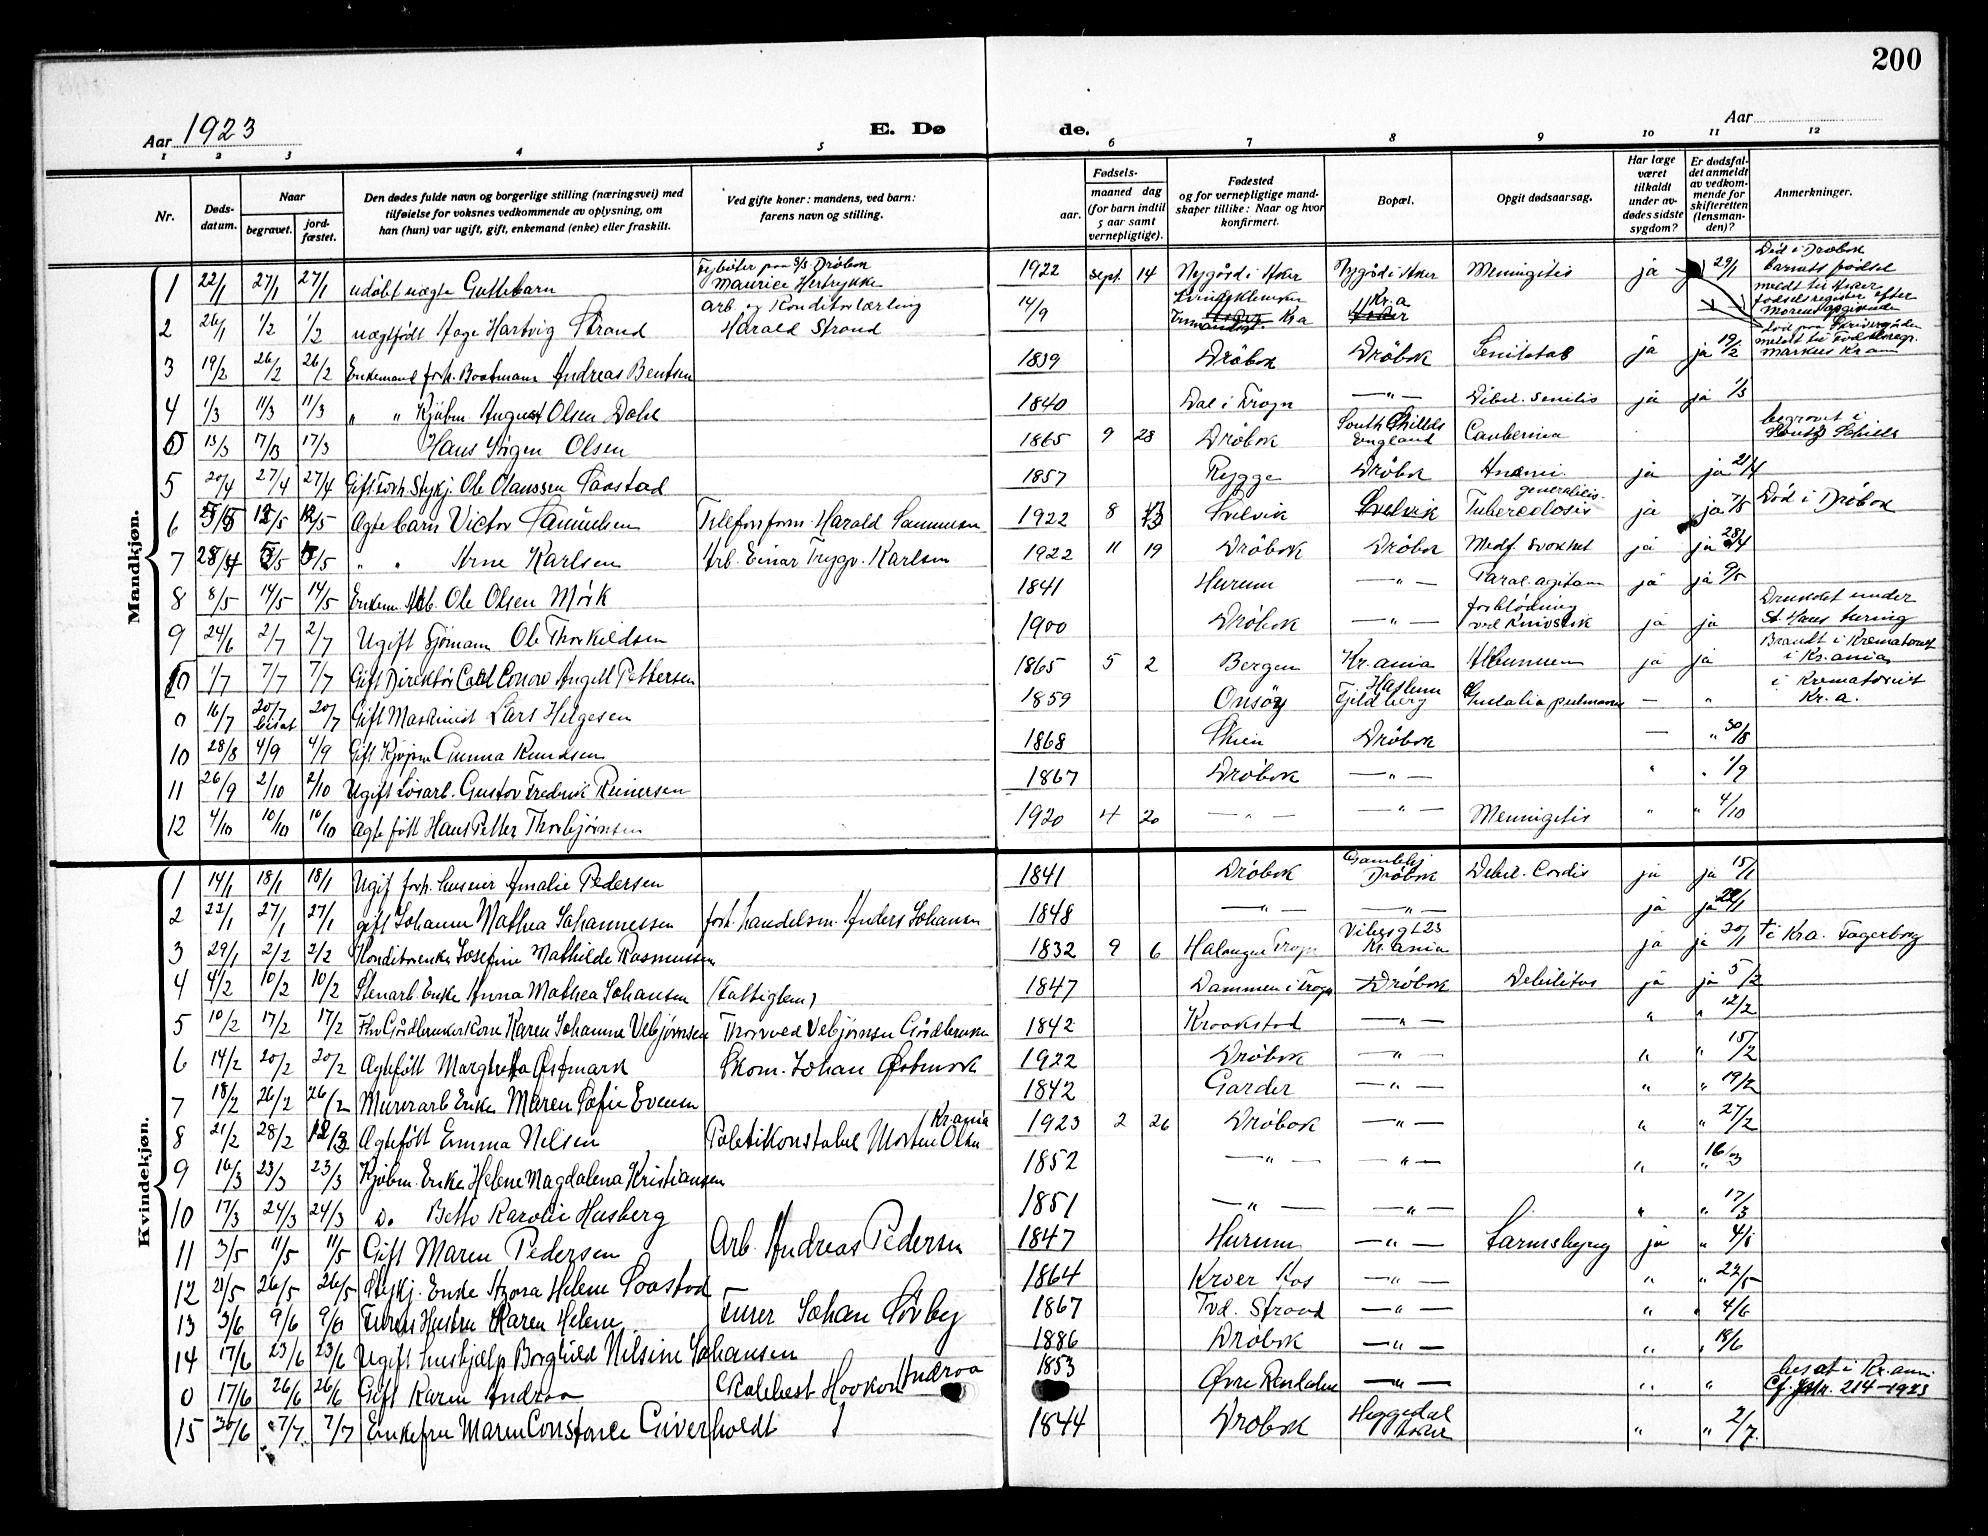 200
Aar 1923
E. Dø
de.
Aar
1 2 3 4 5 6 7 8 9 10 11 12
Nr.
Døds-
datum.
Naar
begravet.
jord-
fæstet.
Den dødes fulde navn og borgerlige stilling (næringsvei) med
tilføielse for voksnes vedkommende av oplysning, om
han (hun) var ugift, gift, enkemand (enke) eller fraskilt.
Ved gifte koner: mandens, ved barn:
farens navn og stilling.
Fødsels-
aar.
maaned dag
(for barn indtil
5 aar samt
vernepligtige).
Fødested
og for vernepligtige mand-
skaper tillike: Naar og hvor
konfirmert.
Bopæl.
Opgit dødsaarsag.
Har læge
været
tilkaldt
under av-
dødes sidste
sygdom?
Er dødsfal-
det anmeldt
av vedkom-
mende for
skifteretten
(lensman-
den)?
Anmerkninger.
Mandkjøn.
1 22/1 27/1 27/1 udøbt uægte Guttebarn Fyrbøter paa S/S Drøbak 1922 Sept. 14 Nygård i Aker Nygård i Aker Meningitis ja 29/1 Død i Drøbak
Maurice Hertrykke barnets fødsel
meldt til Aker
2 26/1 1/2 1/2 uegtefødt Aage Hartvig Strand Arb. og Konditorlærling 14/9 Kr.a fødselsregister efter
Harald Strand Kr a morens opgivende
3 19/2 26/2 26/2 Enkemand forh. Baatmann Andreas Bentsen 1839 Drøbak Drøbak Senilitas ja ja 19/2 Markus Kr.ania
4 1/3 11/3 11/3 " " Kjøbm. August Olsen Dahl 1840 Dal i Frogn — " — Debil. senilis ja ja 1/3
0 13/3 17/3 17/3 Hans Jørgen Olsen 1865 9 28 Drøbak South Shields England begravet i
South Schills
5 20/4 27/4 27/4 Gift forh. Stykj. Ole Olaussen Saastad 1857 Rygge Drøbak Anæmi ja ja 21/4
6 5/5 12/5 12/5 Ægte barn Victor Samuelsen Telefonform. Harald Samuelsen 1922 8 Svelvik Svelvik Tuberculosis generalilis. ja ja 7/5 Død i Drøbak
7 28/4 5/5 5/5 " " Arne Karlsen Arb. Einar Trygv. Karlsen 1922 11 19 Drøbak Drøbak Medf. svakhet ja ja 28/4
8 8/5 14/5 14/5 Enkem. Arb. Ole Olsen Mørk 1841 Hurum — " — Paral. agitans ja ja 9/5
9 24/6 2/7 2/7 Ugift Sjømann Ole Thorkildsen 1900 Drøbak — " — forblødning ved knivstik ja ja Drukket under
St. Hans turing
10 1/7 7/7 7/7 Gift Direktør Carl Conow Angell Pettersen 1865 5 2 Bergen Kr.ania ja ja Brandt i Krematoriet
i Kr.ania
0 16/7 20/7 bisat 20/7 Gift Maskinist Lars Helgesen 1859 Onsøy Haslum Fjeldberg — " i Krematoriet
Kr.a.
10 28/8 4/9 4/9 Gift Kjøpm. Gunna Knudsen 1868 Skien Drøbak — " 30/8
11 26/9 2/10 2/10 Ugift Løsarb. Gustav Fredrik Reinersen 1867 Drøbak — " — " " 1/9
12 4/10 10/10 10/10 Ægte født Hans Petter Thorbjørnsen 1920 4 20 — " — — " — Meningitis " " 4/10
Kvindekjøn.
1 14/1 18/1 18/1 Ugift forh. huseier Amalie Pedersen 1841 Drøbak Gamlehj. Drøbak Debil. Cordis ja ja 15/1
2 22/1 27/1 27/1 gift Johanne Mathea Johannessen forh. handelsm. Anders Johansen 1848 — " — — " — ja ja 22/1
3 29/1 2/2 2/2 Konditorenke Josefine Mathilde Rasmussen 1832 9 6 Halangen Frogn Vibesgt 23 Kr.ania ja ja 20/1 † i Kra. Fagerborg
4 4/2 10/2 10/2 Stenarb. Enke Anna Mathea Johansen (Fattighem) 1847 Dammen i Frogn Drøbak Debilitas ja ja 5/2
5 10/2 17/2 17/2 Fhv. Gårdbrukerkone Karen Johanne Vebjørnsen Thorvald Vebjørnsen Gårdbruker 1842 Kraakstad — " — " " 12/2
6 14/2 20/2 20/2 Ægtefødt Margretha Østmark Skom. Johan Østmark 1922 Drøbak — " — " " 15/2
7 18/2 26/2 26/2 Murerarb. Enke Maren Sofie Evensen 1842 Garder — " — " " 19/2
8 21/2 28/2 Ægtefødt Emma Nilsen Politikonstabel Morten Olsen Kr.ania 1923 2 26 Drøbak — " — " " 27/2
9 16/3 23/3 23/3 Kjøbm. Enke Helene Magdalena Kristiansen 1852 — " — — " — " " 16/3
10 17/3 24/3 24/3 Do. Betto Karolie Husberg 1851 — " — — " — " " 17/3
11 3/5 11/5 11/5 Gift Maren Pedersen Arb. Andreas Pedersen 1847 Hurum — " — ja " 4/5
12 21/5 26/5 26/5 Stykj. Enke Helene Saastad — 1864 Kroer Aas — " — " " 22/5
13 3/6 9/6 9/6 Furers Hustru Karen Helene Furer Johan Sørby 1867 Tvd. Strand — " — " " 4/6
14 17/6 23/6 23/6 Ugift hushjælp Borghild Nilsine Johansen 1886 Drøbak — " — " " 18/6
0 17/6 26/6 26/6 Gift Karen Andraa Haakon Andraa 1853 Øvre Rendalen — " — " " bisat i Kr.ania
Cf. J.nr. 214-1923
15 30/6 7/7 7/7 Enkefru Maren Constance Giverholdt 1844 Drøbak Heggedal Asker " " 2/7